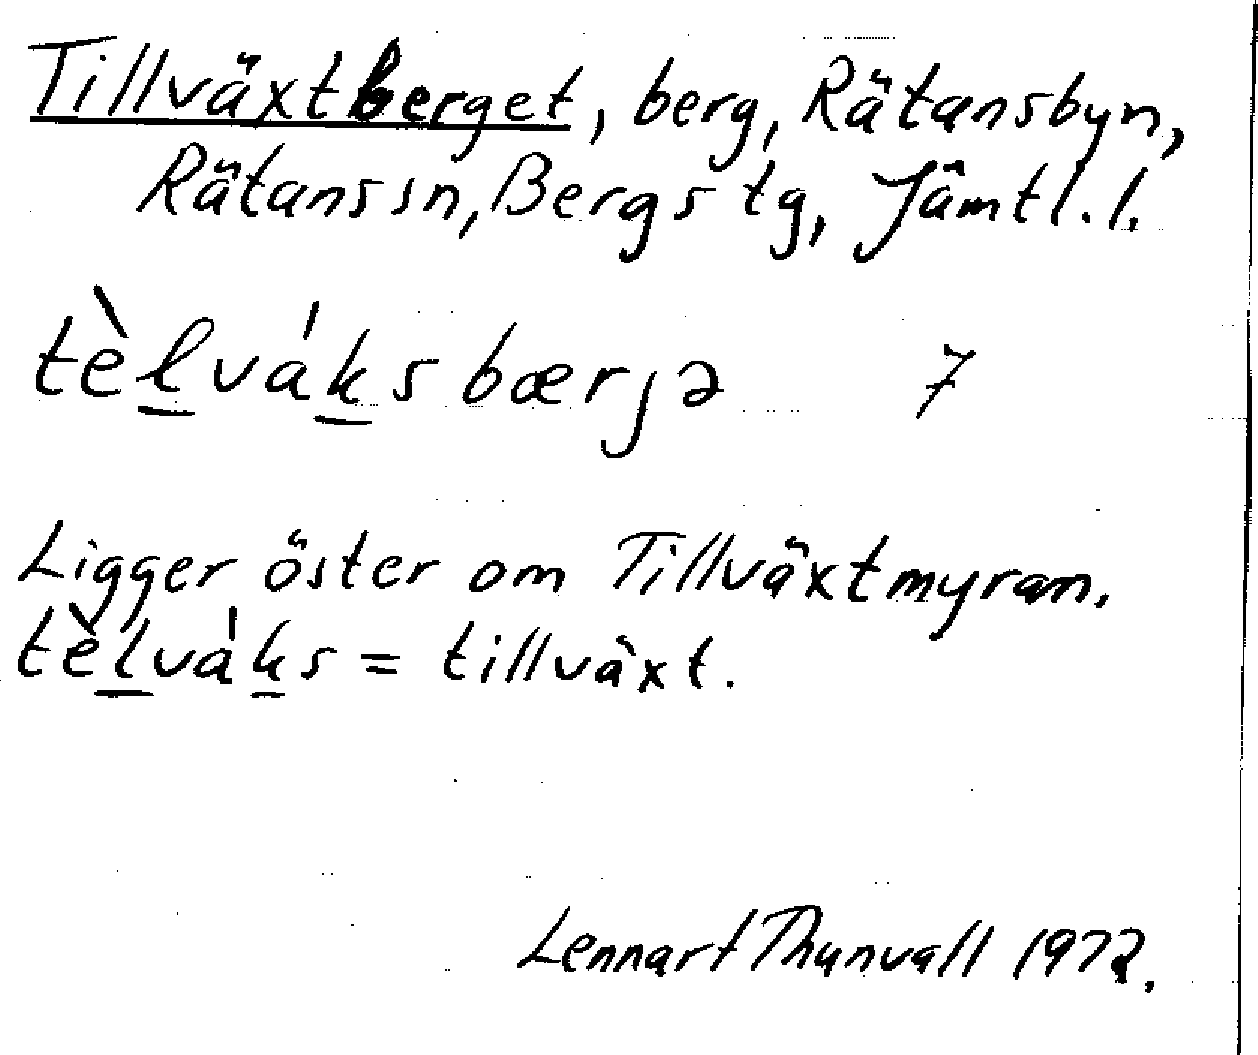 Tillväxtberget, berg, Rätansbyn,
Rätans sn, Bergs tg, Jämtl. l.
tèl̲vák̲sbærjə 7
Ligger öster om Tillväxtmyran.
tèl̲vák̲s = tillväxt.
Lennart Thunvall 1972.